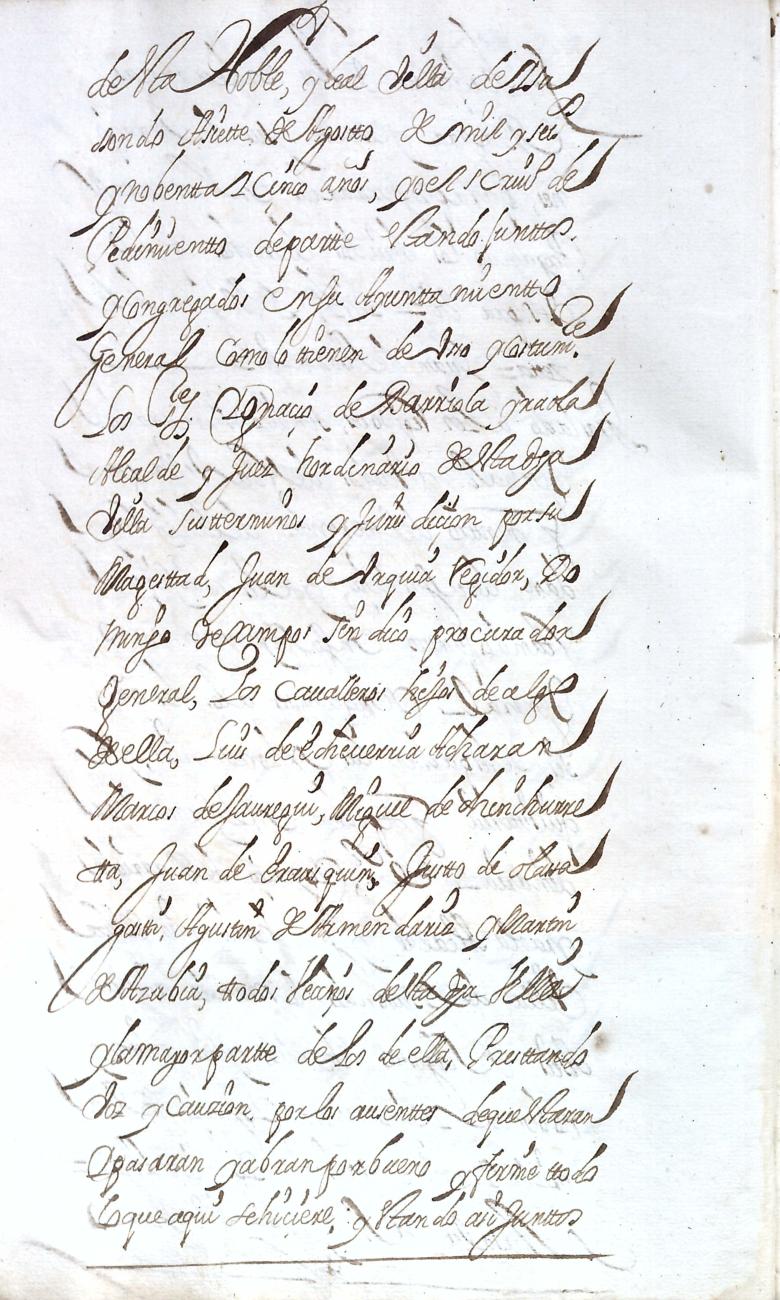 de Vsta Noble, y leal Villa de Vsu
sondo Asiette de Agostto de mil y seis
y nobentta i Cinco años, y o el scriuº de
Pedimientto de partte Vstando Junttos
y Congregados en su Ayuntamientto
General Como lo ttienen de Vso y Costumbre
Los Ses D. Ignacio de Barriola y raola
Alcalde y Juez hordinario de Vsta dha
Villa sus tterminos y Jurisdiçion por su
Magesttad, Juan de Vrquia Regidor, Do
mingo de Campos sindico procurador
General, Los Caualleros hijos de algo
de ella, Luis de Echeuerria Acharan
Marcos de Jauregui, Miguel de chinchurre
tta, Juan de Erarizquin, Justto de olasa
gastti, Agustin de Armendariz y Martin
de Azubia, ttodos Vecinos de Vsta dha Villa
y la mayor partte de los de ella, Presttando
Voz y Cauzion por los ausenttes de que Vstaran
I pasaran y abran por bueno y firme ttodo
lo que aqui se hiciere, y Vstando asi Junttos